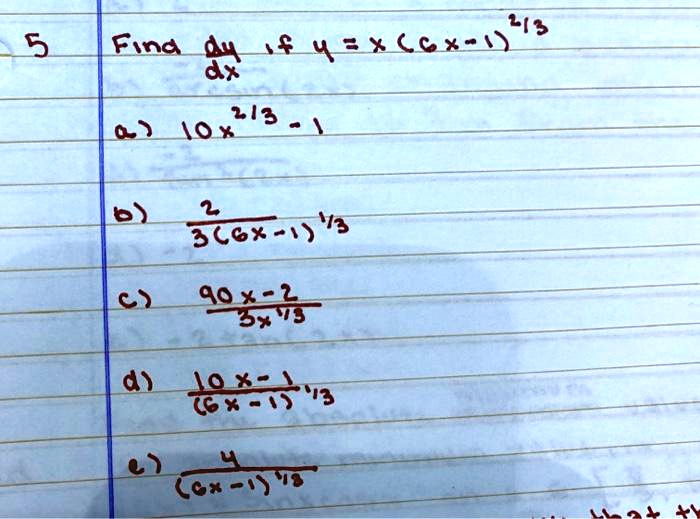 5 Find dy/dx if y = x(6x-1)^2/3
a) 10x^2/3 - 1
b) 2/3(6x-1)^1/3
c) 90x-2/3x^1/3
d) 10x-1/(6x-1)^1/3
e) 4/(6x-1)^1/3
that th